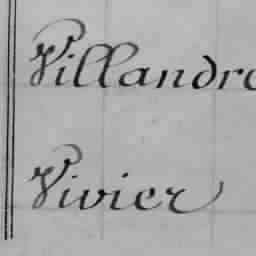 Villandre
Vivier